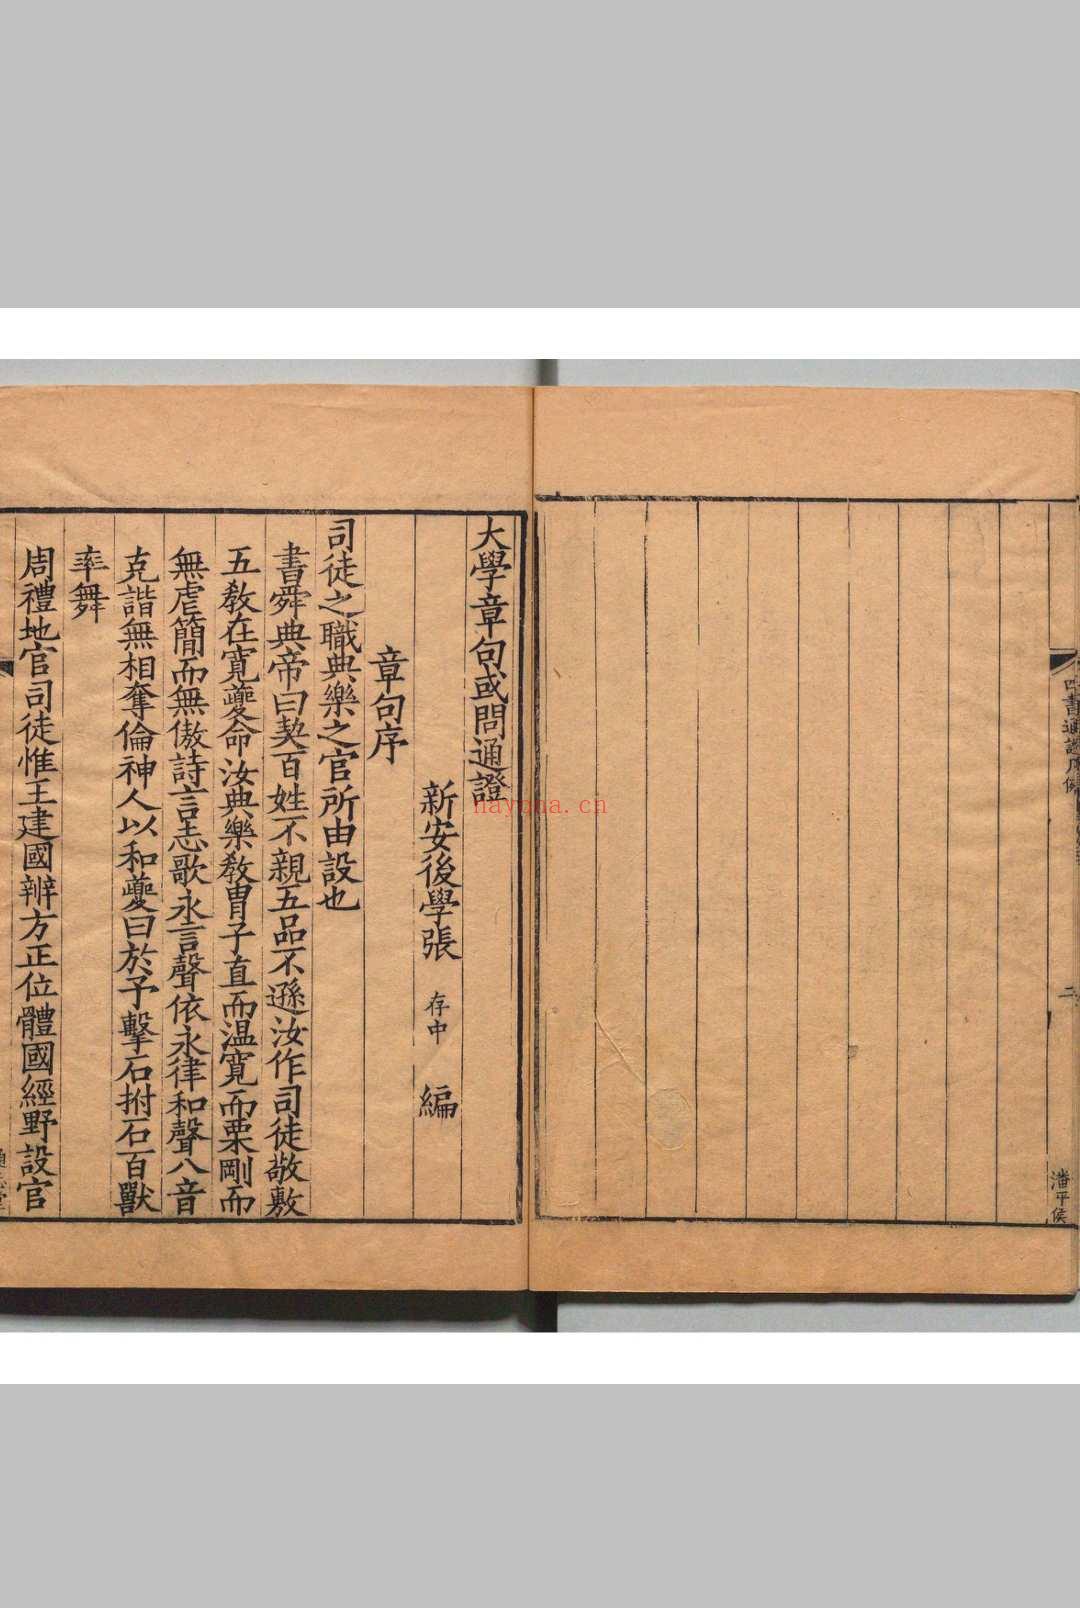 潘平侯
大學章句或問通證
新安後學張 存中 編
章句序
司徒之職典樂之官所由設也
書舜典帝曰契百姓不親五品不遜汝作司徒敬敷
五敎在寬夔命汝典樂敎胄子直而温寬而栗剛而
無虐簡而無傲詩言志歌永言聲依永律和聲八音
克諧無相奪倫神人以和夔曰於予擊石拊石百獸
率舞
周禮地官司徒惟王建國辨方正位體國經野設官
nayona.cn